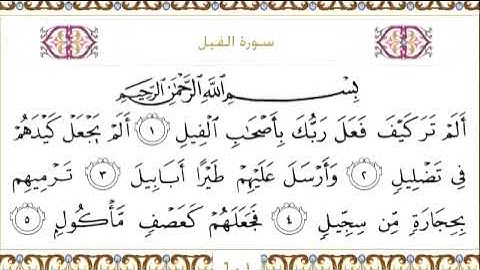 سورة الفيل
بِسْمِ اللَّهِ الرَّحْمَٰنِ الرَّحِيمِ
أَلَمْ تَرَ كَيْفَ فَعَلَ رَبُّكَ بِأَصْحَٰبِ الْفِيلِ ١ أَلَمْ يَجْعَلْ كَيْدَهُمْ
فِي تَضْلِيلٍ ٢ وَأَرْسَلَ عَلَيْهِمْ طَيْرًا أَبَابِيلَ ٣ تَرْمِيهِم
بِحِجَارَةٍ مِّن سِجِّيلٍ ٤ فَجَعَلَهُمْ كَعَصْفٍ مَّأْكُولٍ ٥
٦٠١